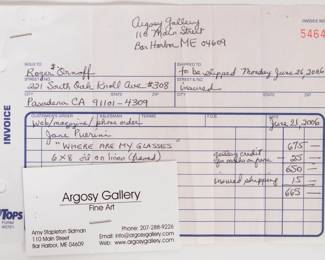 Argosy Gallery
110 Main Street
Bar Harbor ME 04609
INVOICE
5464
SOLD TO
SHIPPED TO
Roger
to be shipped Monday June 26, 2006
221 South Oak Knoll Ave #308
insured
Pasadena CA 91101-4309
CUSTOMER'S ORDER
SALESMAN
TERMS
Web/magazine/phone order
June 21, 2006
Jane
"WHERE ARE MY GLASSES"
675 —
6x8 oil on linen (framed)
gallery credit
25 —
650 —
insured shipping
15 —
665 —
INVOICE
TOPS
Argosy Gallery
Fine Art
Amy Stapleton Salman
110 Main Street
Bar Harbor, ME 04609
Phone: 207-288-9226
Email: info@argosygallery.com
Web: www.argosygallery.com